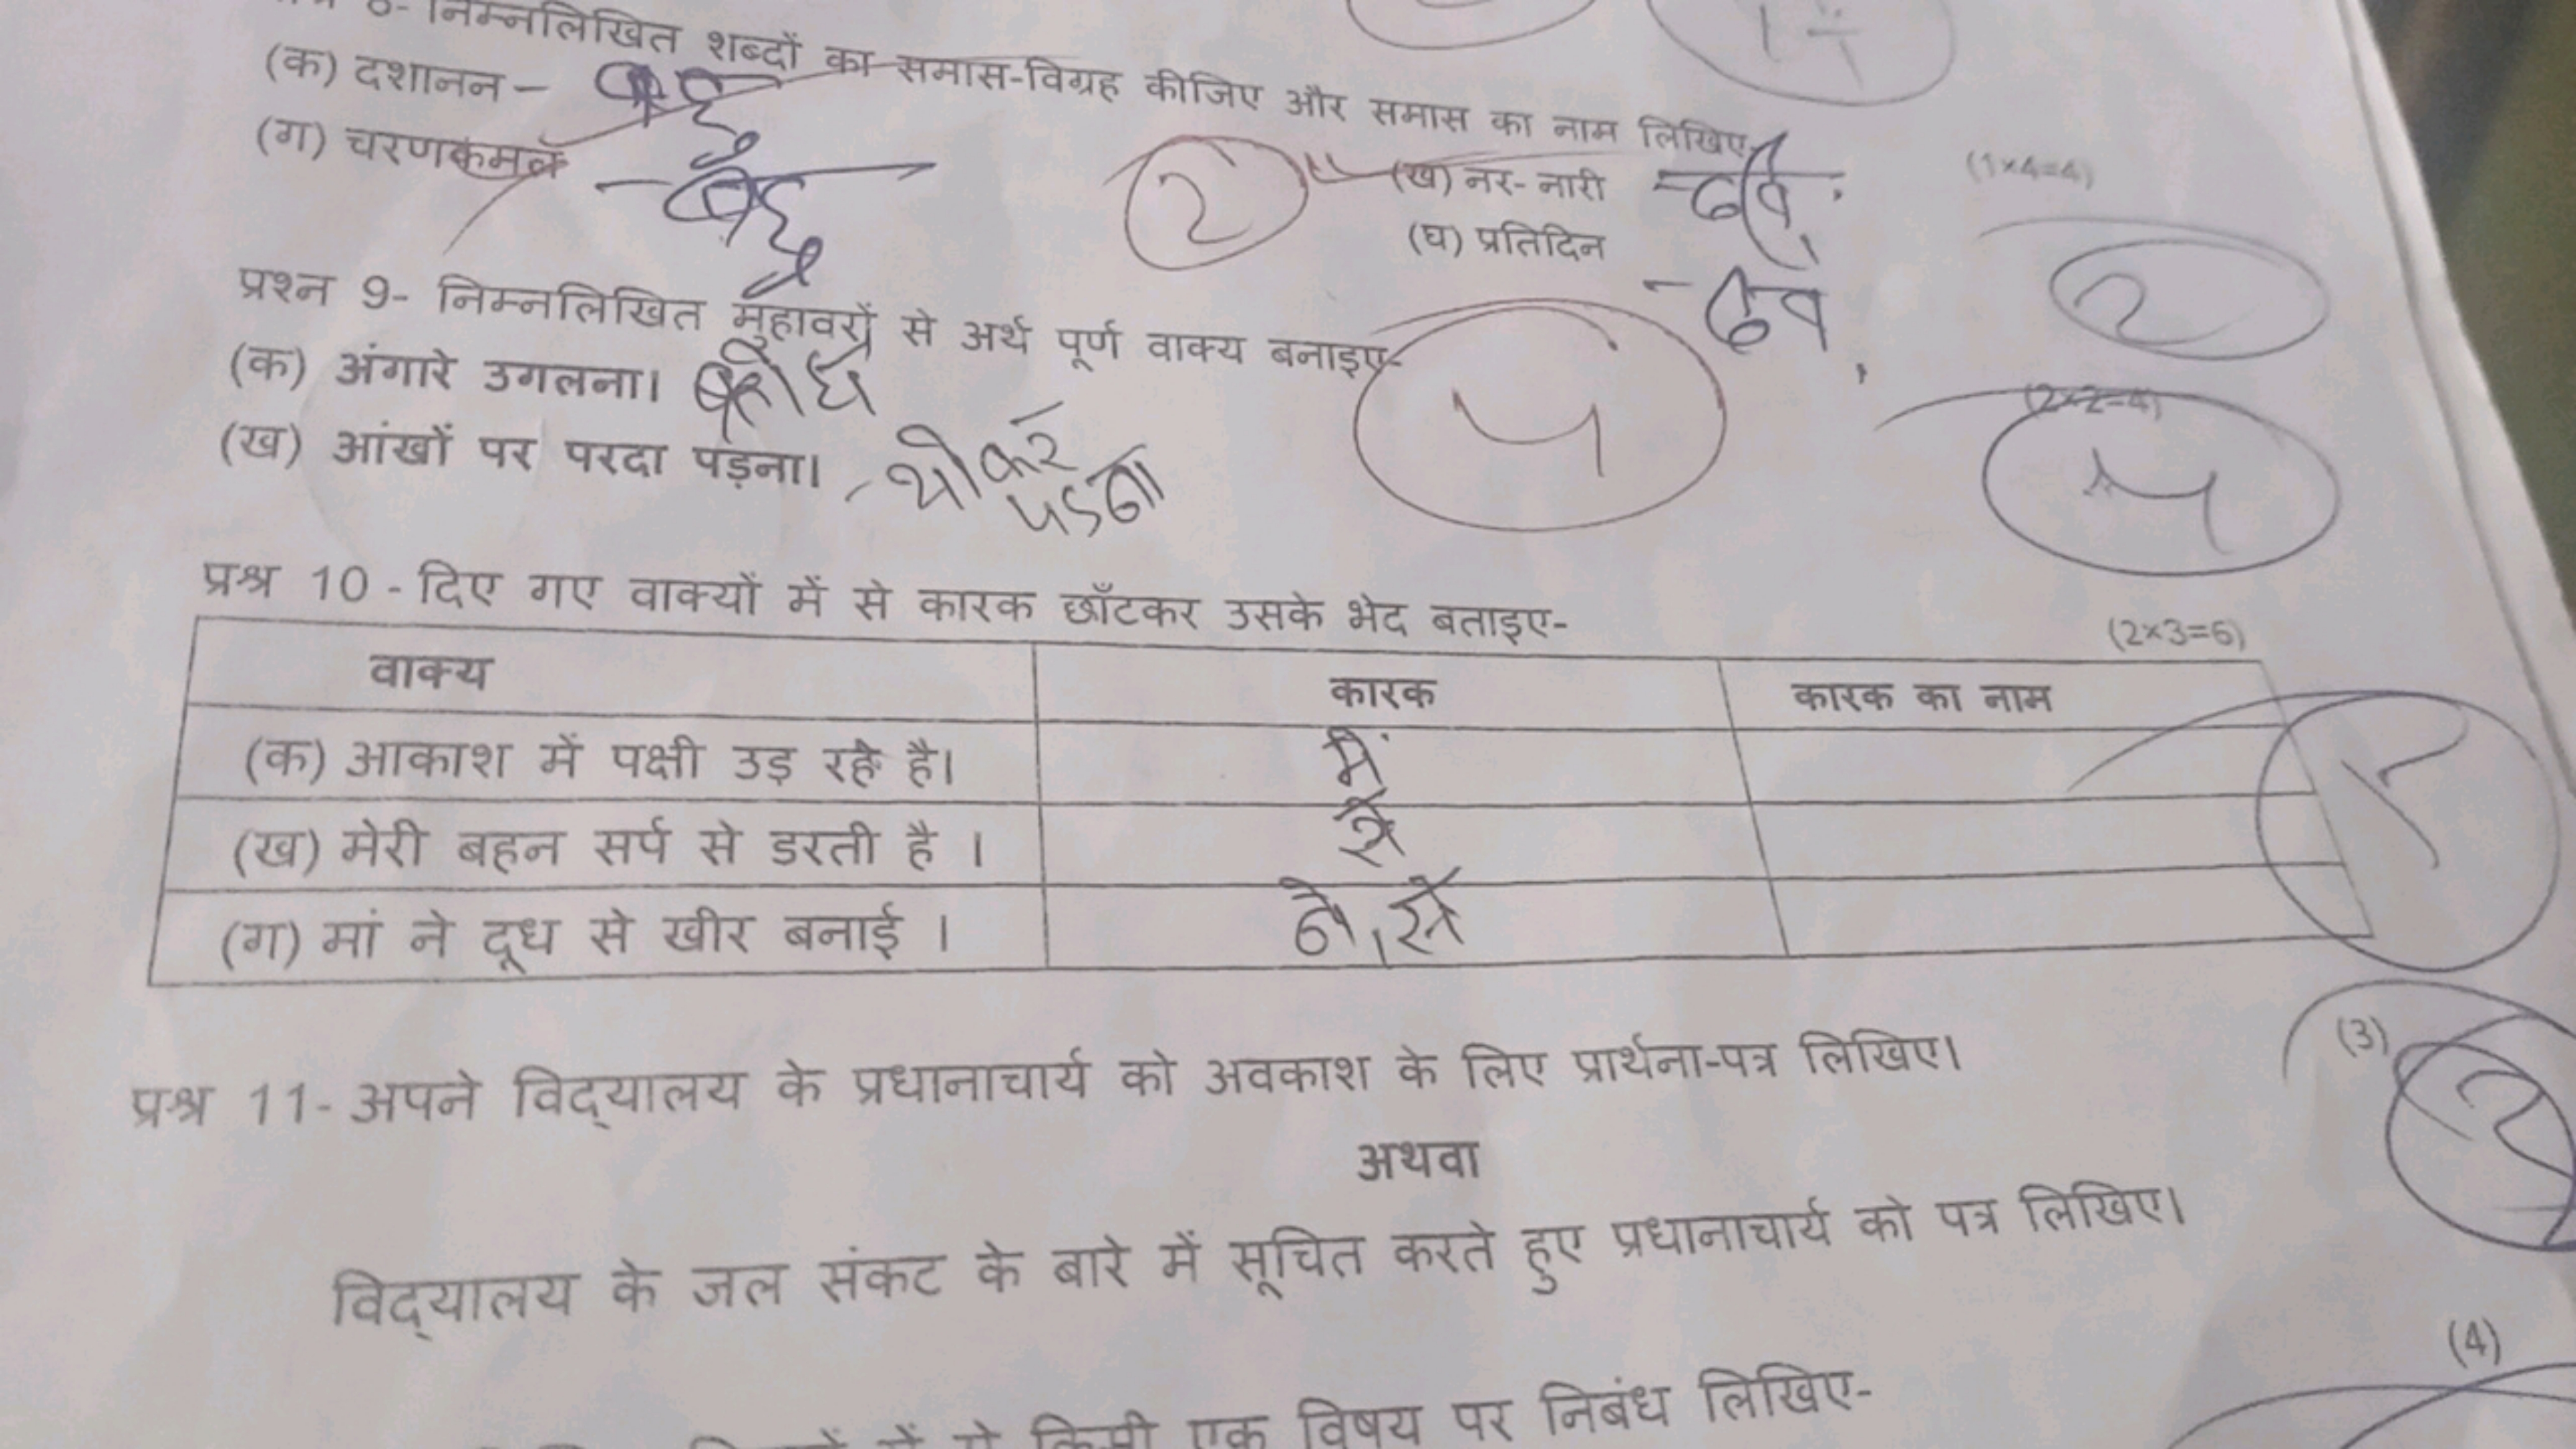 निम्नलिखित शब्दों का समास-विग्रह कीजिए और समास का नाम लिखिए-
(1×4=4)
(क) दशानन –
(ख) नर- नारी
(ग) चरणकमल
(घ) प्रतिदिन
2
2
प्रश्न 9- निम्नलिखित मुहावरों से अर्थ पूर्ण वाक्य बनाइए-
(2×2=4)
(क) अंगारे उगलना।
(ख) आंखों पर परदा पड़ना।
पडना
प्रश्न 10 - दिए गए वाक्यों में से कारक छाँटकर उसके भेद बताइए-
(2×3=6)
वाक्य कारक कारक का नाम
(क) आकाश में पक्षी उड़ रहे है। में
(ख) मेरी बहन सर्प से डरती है । से
(ग) मां ने दूध से खीर बनाई । ने, से
प्रश्न 11- अपने विद्यालय के प्रधानाचार्य को अवकाश के लिए प्रार्थना-पत्र लिखिए।
(3)
2
अथवा
विद्यालय के जल संकट के बारे में सूचित करते हुए प्रधानाचार्य को पत्र लिखिए।
(4)
किसी एक विषय पर निबंध लिखिए-